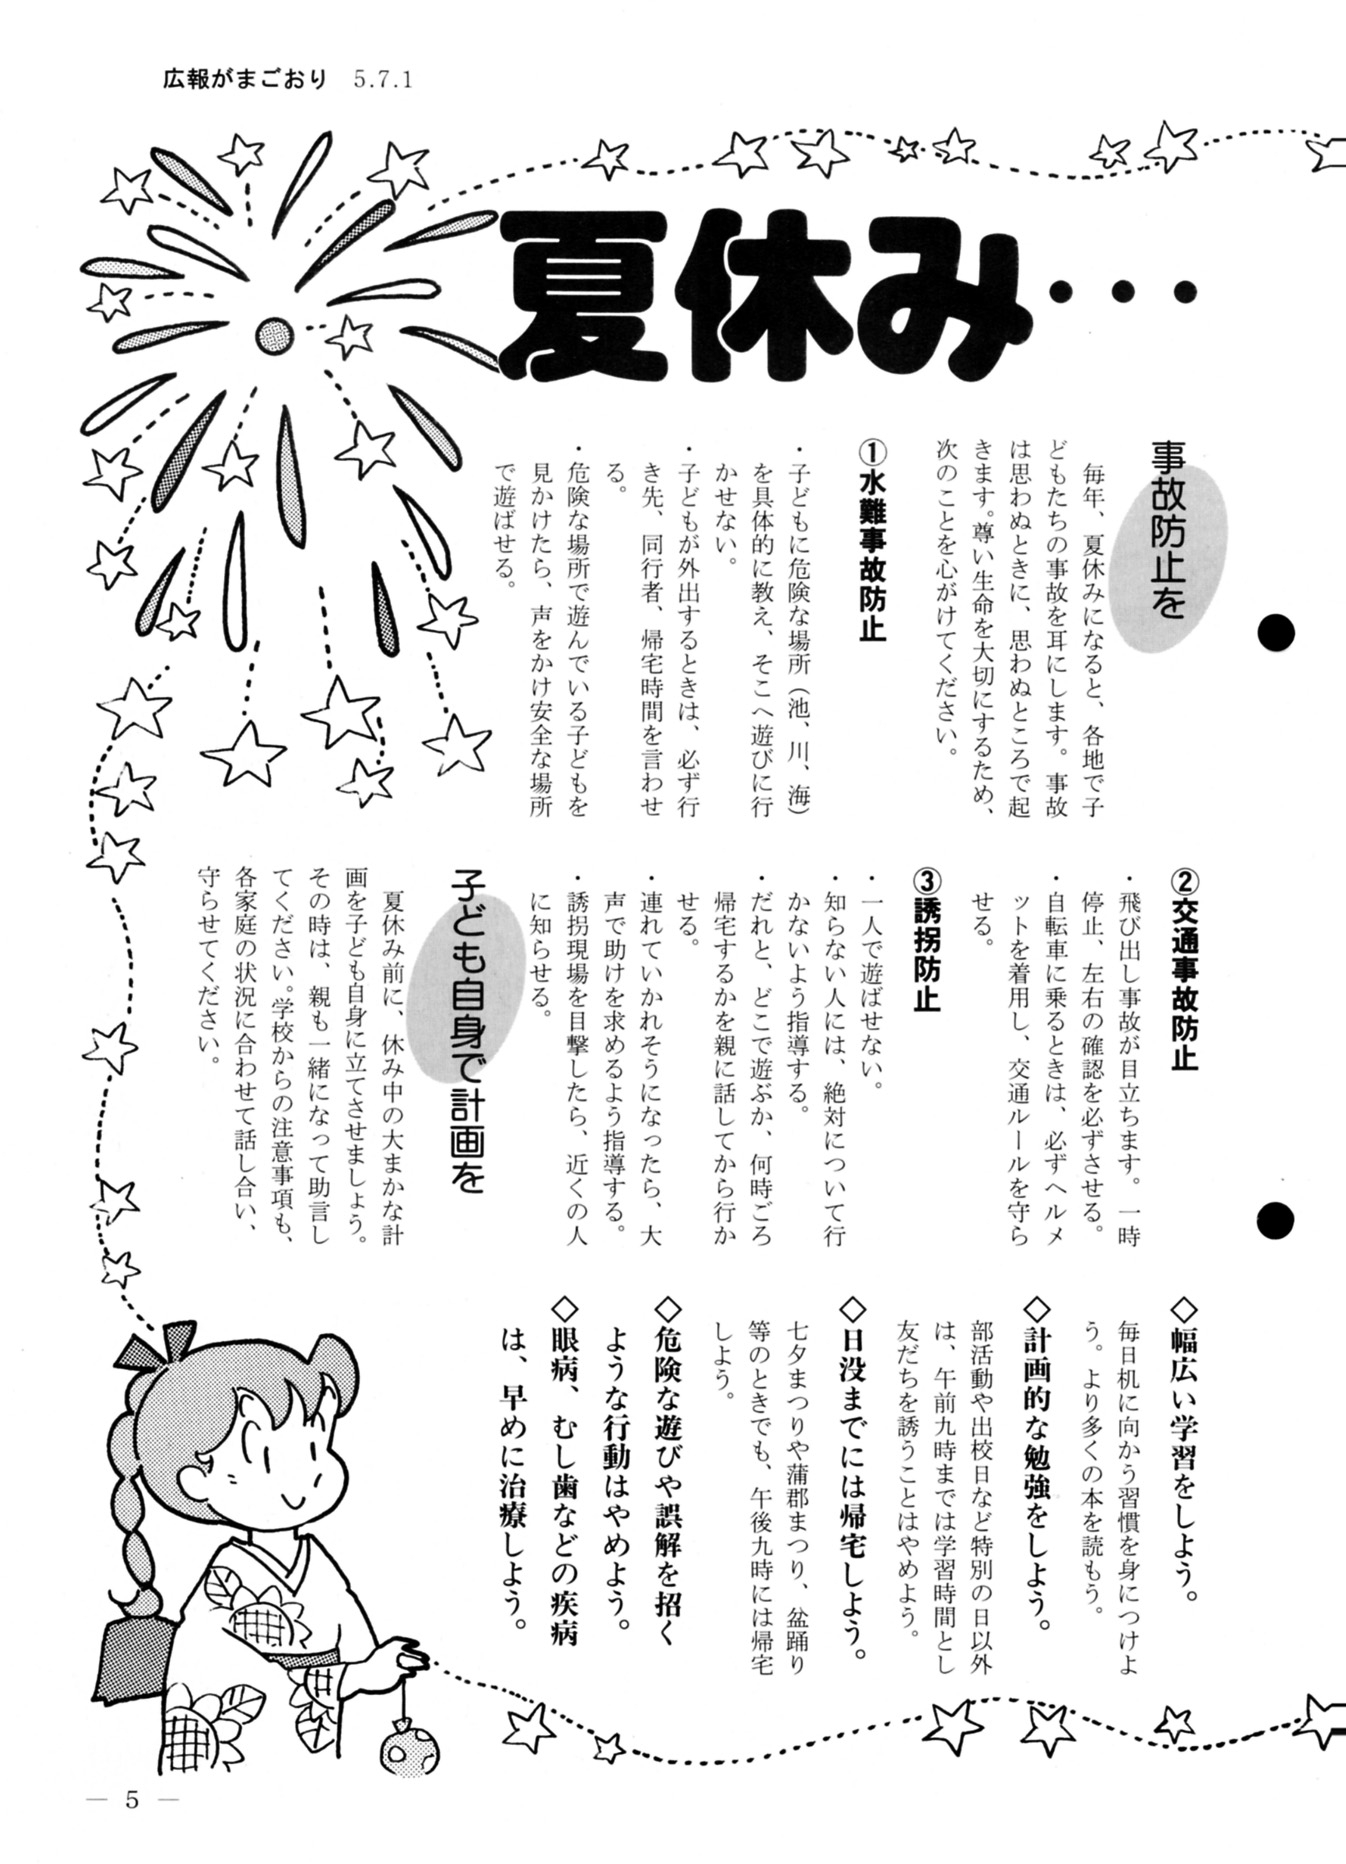 広報がまごおり 5.7.1
夏休み・・・
事故防止を
毎年、夏休みになると、各地で子
どもたちの事故を耳にします。事故
は思わぬときに、思わぬところで起
きます。尊い生命を大切にするため、
次のことを心がけてください。
①水難事故防止
・子どもに危険な場所（池、川、海）
を具体的に教え、そこへ遊びに行
かせない。
・子どもが外出するときは、必ず行
き先、同行者、帰宅時間を言わせ
る。
・危険な場所で遊んでいる子どもを
見かけたら、声をかけ安全な場所
で遊ばせる。
②交通事故防止
・飛び出し事故が目立ちます。一時
停止、左右の確認を必ずさせる。
・自転車に乗るときは、必ずヘルメ
ットを着用し、交通ルールを守ら
せる。
③誘拐防止
・一人で遊ばせない。
・知らない人には、絶対について行
かないよう指導する。
・だれと、どこで遊ぶか、何時ごろ
帰宅するかを親に話してから行か
せる。
・連れていかれそうになったら、大
声で助けを求めるよう指導する。
・誘拐現場を目撃したら、近くの人
に知らせる。
子ども自身で計画を
夏休み前に、休み中の大まかな計
画を子ども自身に立てさせましょう。
その時は、親も一緒になって助言し
てください。学校からの注意事項も、
各家庭の状況に合わせて話し合い、
守らせてください。
◇幅広い学習をしよう。
毎日机に向かう習慣を身につけよ
う。より多くの本を読もう。
◇計画的な勉強をしよう。
部活動や出校日など特別の日以外
は、午前九時までは学習時間とし
友だちを誘うことはやめよう。
◇日没までには帰宅しよう。
七夕まつりや蒲郡まつり、盆踊り
等のときでも、午後九時には帰宅
しよう。
◇危険な遊びや誤解を招く
ような行動はやめよう。
◇眼病、むし歯などの疾病
は、早めに治療しよう。
— 5 —